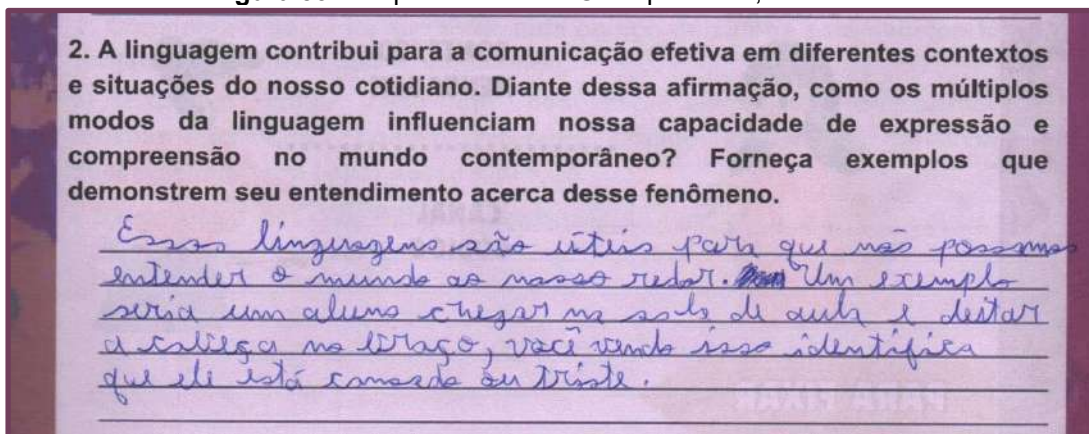 2. A linguagem contribui para a comunicação efetiva em diferentes contextos
e situações do nosso cotidiano. Diante dessa afirmação, como os múltiplos
modos da linguagem influenciam nossa capacidade de expressão e
compreensão no mundo contemporâneo? Forneça exemplos que
demonstrem seu entendimento acerca desse fenômeno.
Essas linguagens são úteis para que nós possamos
entender o mundo ao nosso redor. Um exemplo
seria um aluno chegar na sala de aula e deitar
a cabeça no braço, você vendo isso identifica
que ele está cansado ou triste.